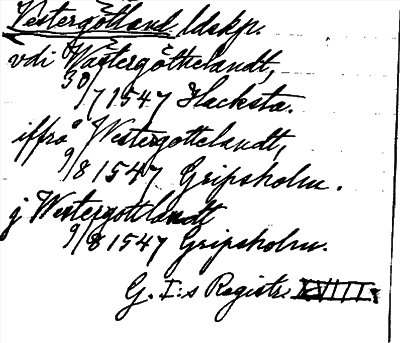 Vestergötland, ldskp.
vdi Wästergötthelandt,
30/7 1547 Hacksta.
iffrå Westergottelandt,
9/8 1547 Gripsholm.
j Westergottlandt
9/8 1547 Gripsholm.
G. I:s Registr. XVIII.